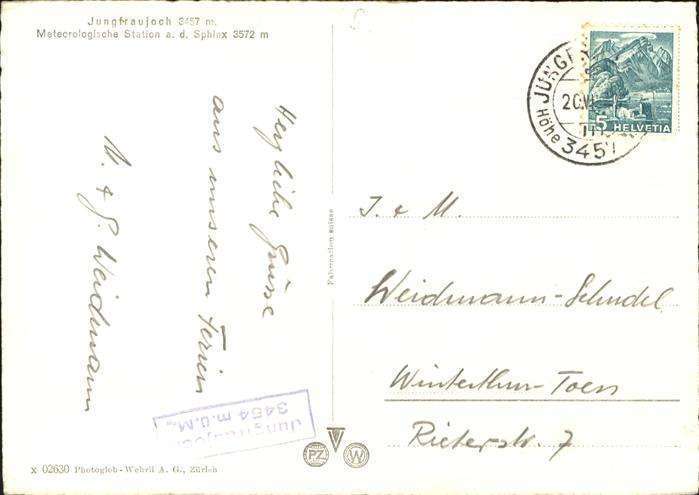 Jungfraujoch 3457 m.
Meteorologische Station a. d. Sphinx 3572 m
Herzliche Grüsse
aus unseren Ferien
W. & G. Weidmann
Fabrication suisse
JUNGF
20.VI
Höhe 3457
5 HELVETIA
J. & M.
Weidmann-Schudel
Winterthur-Toess
Rieterstr. 7
Jungfraujoch
3454 m.ü.M.
PZ W
X 02630 Photoglob-Wehrli A. G., Zürich